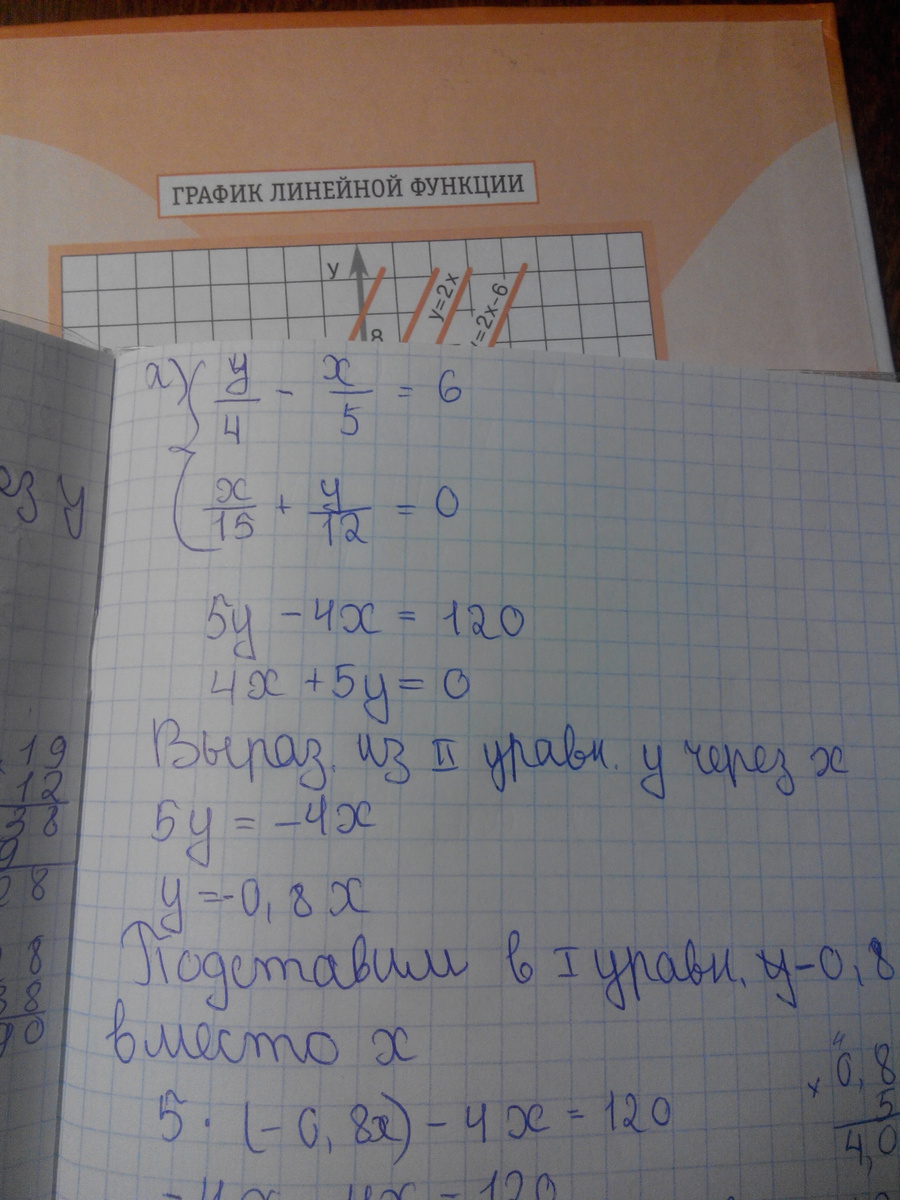 ГРАФИК ЛИНЕЙНОЙ ФУНКЦИИ
y
8
y=2x
y=2x-6
а) { y/4 - x/5 = 6
x/15 + y/12 = 0
5y - 4x = 120
4x + 5y = 0
Выраз. из II уравн. y через x
5y = -4x
y = -0,8x
Подставим в I уравн. y-0,8
вместо x
5 · (-0,8x) - 4x = 120
-4x - 4x = 120
з y
19
12
3 8
8
8
8
0
4
0,8
x 5
4,0